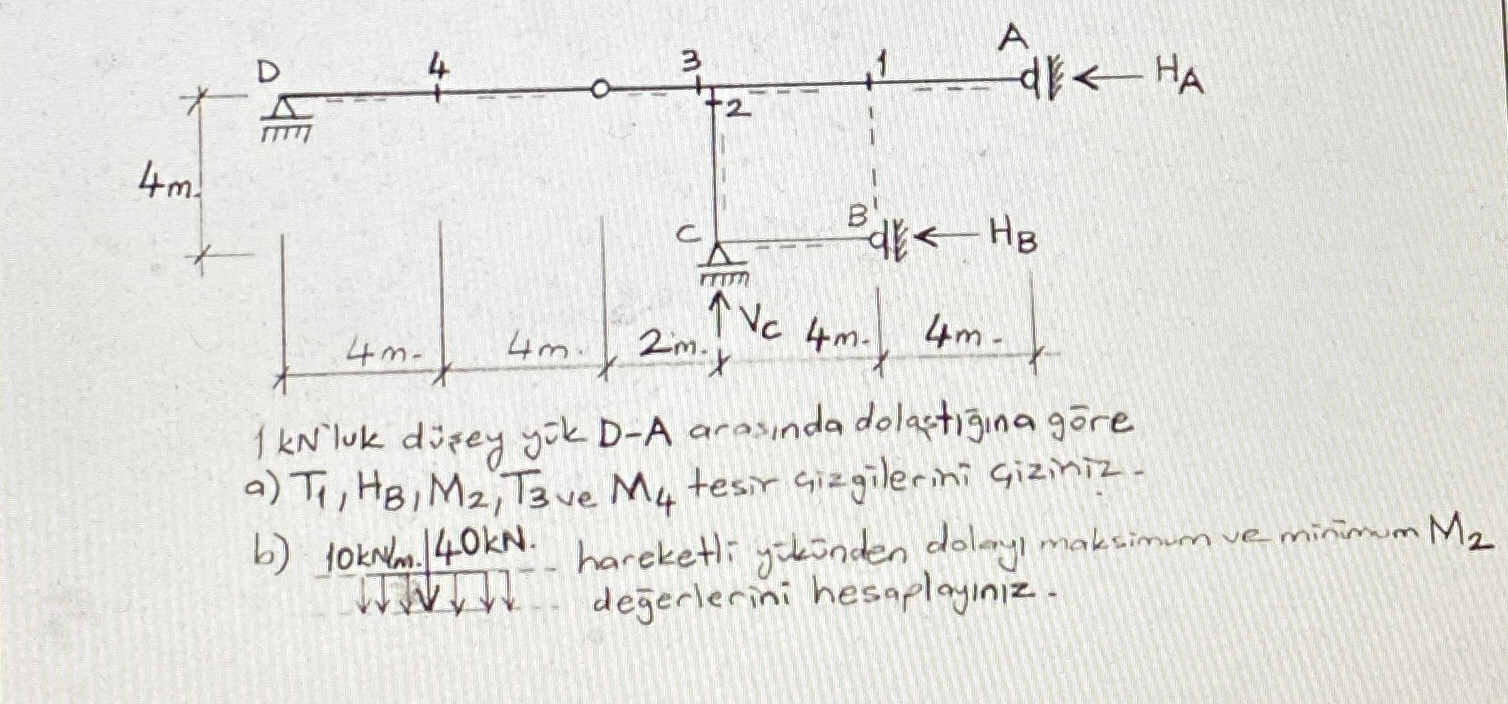 A
D 4 3 1 HA
2
4m.
B
C HB
VC
4m. 4m. 2m. 4m. 4m.
1 kN'luk düşey yük D-A arasında dolaştığına göre
a) T1, HB, M2, T3 ve M4 tesir çizgilerini çiziniz.
b) 10kN/m. 40kN. hareketli yükünden dolayı maksimum ve minimum M2
değerlerini hesaplayınız.